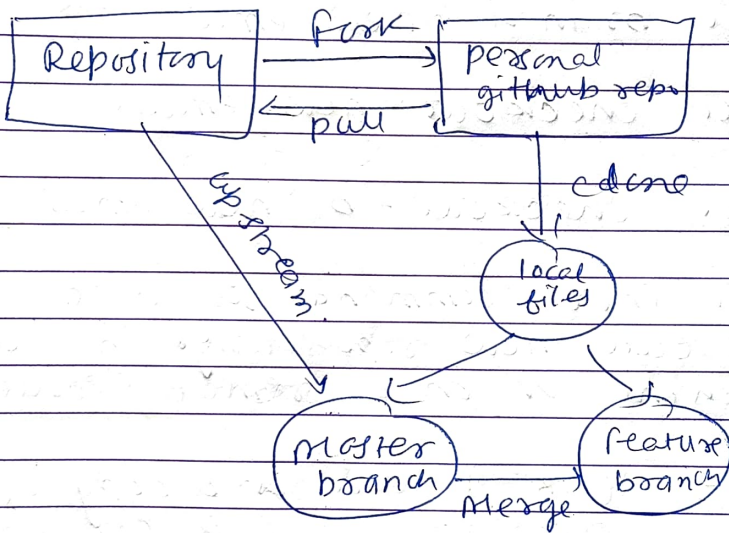 Repository
Fork
personal
github repo
pull
clone
upstream
local
files
Master
branch
Merge
feature
branch